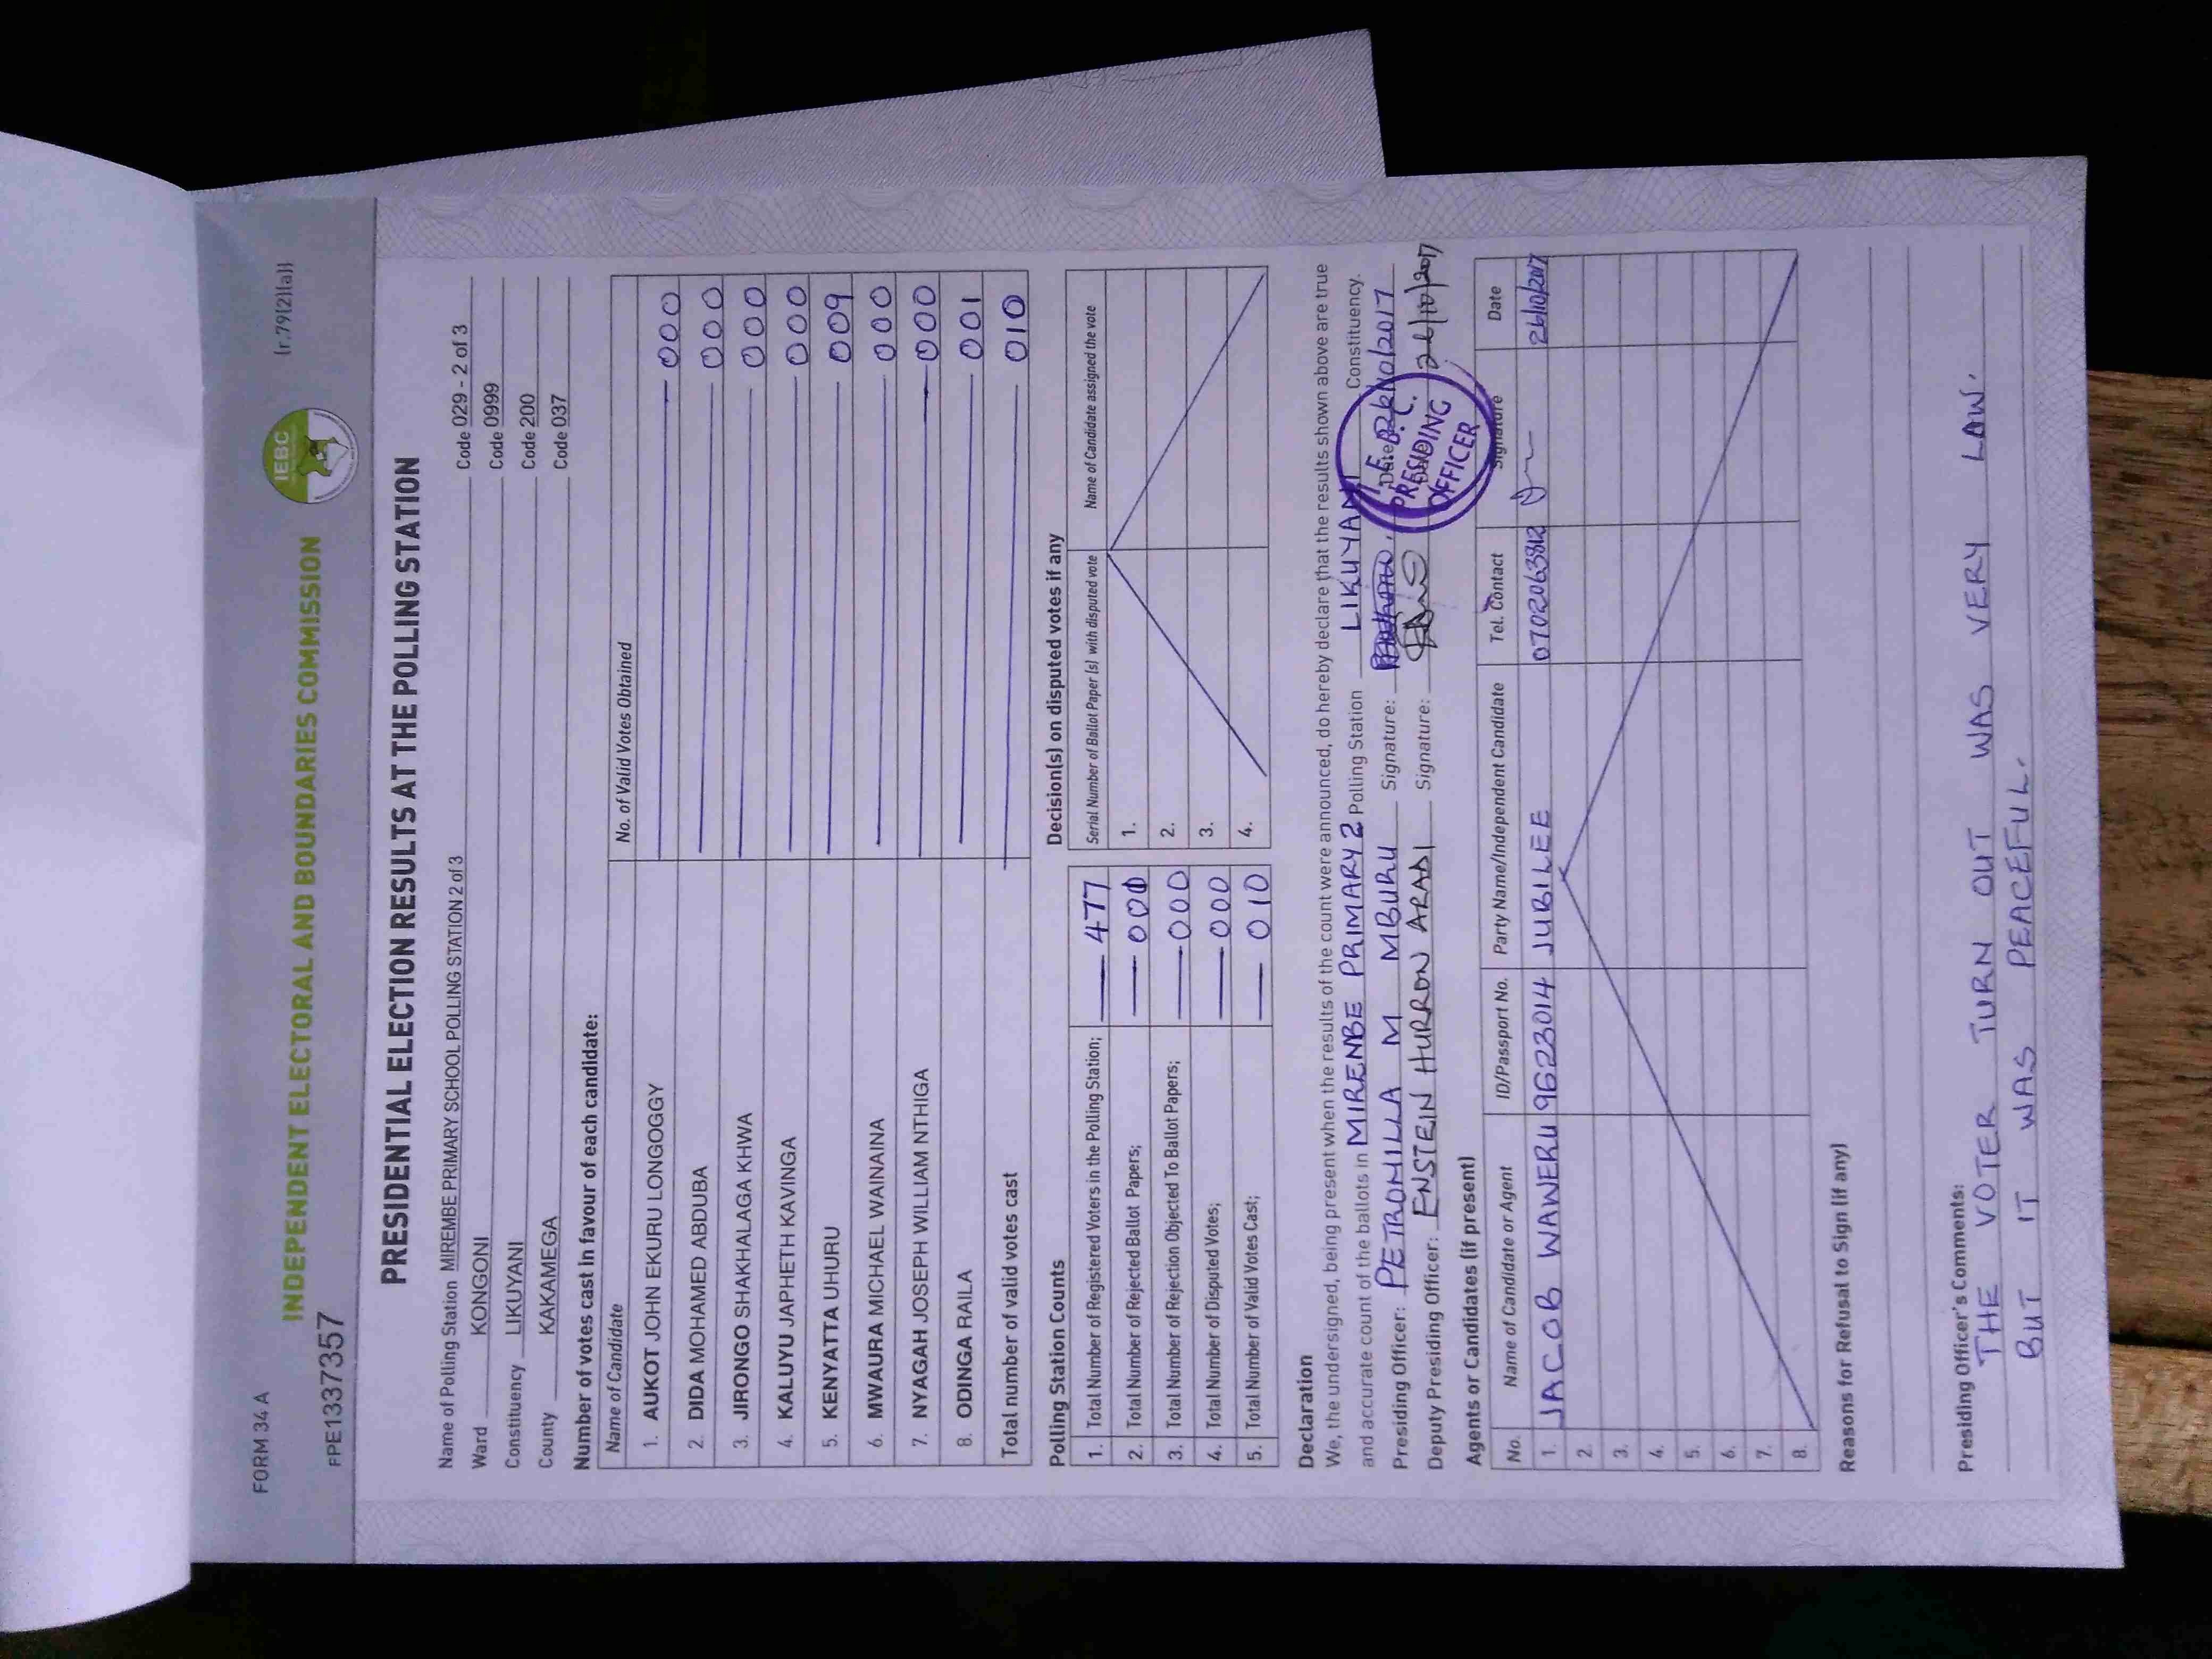 FORM 34 A
(r.79(2)(a))
INDEPENDENT ELECTORAL AND BOUNDARIES COMMISSION
IEBC
FPE1337357
PRESIDENTIAL ELECTION RESULTS AT THE POLLING STATION
Name of Polling Station MIREMBE PRIMARY SCHOOL POLLING STATION 2 of 3 Code 029 - 2 of 3
Ward KONGONI Code 0999
Constituency LIKUYANI Code 200
County KAKAMEGA Code 037
Number of votes cast in favour of each candidate:
Name of Candidate No. of Valid Votes Obtained
1. AUKOT JOHN EKURU LONGOGGY 000
2. DIDA MOHAMED ABDUBA 000
3. JIRONGO SHAKHALAGA KHWA 000
4. KALUYU JAPHETH KAVINGA 000
5. KENYATTA UHURU 009
6. MWAURA MICHAEL WAINAINA 000
7. NYAGAH JOSEPH WILLIAM NTHIGA 000
8. ODINGA RAILA 001
Total number of valid votes cast 010
Polling Station Counts
1. Total Number of Registered Voters in the Polling Station; 477
2. Total Number of Rejected Ballot Papers;
3. Total Number of Rejection Objected To Ballot Papers; 000
4. Total Number of Disputed Votes; 000
5. Total Number of Valid Votes Cast; 010
Decision(s) on disputed votes if any
Serial Number of Ballot Paper (s) with disputed vote Name of Candidate assigned the vote
1.
2.
3.
4.
Declaration
We, the undersigned, being present when the results of the count were announced, do hereby declare that the results shown above are true
and accurate count of the ballots in MIRENBE PRIMARY 2 Polling Station LIKUYANI Constituency.
Presiding Officer: PETRONILLA M MBURU Signature: Date 26/10/2017
Deputy Presiding Officer: ENSTEIN HURRON ARADI Signature: Date 26/10/2017
I.E.B.C.
PRESIDING
OFFICER
Agents or Candidates (if present)
No. Name of Candidate or Agent ID/Passport No. Party Name/Independent Candidate Tel. Contact Signature Date
1. JACOB WAWERU 9623014 JUBILEE 0702063812 26/10/2017
2.
3.
4.
5.
6.
7.
8.
Reasons for Refusal to Sign (if any)
Presiding Officer's Comments:
THE VOTER TURN OUT WAS VERY LAW.
BUT IT WAS PEACEFUL.